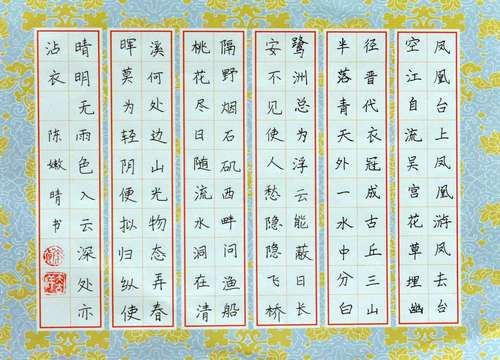 凤凰台上凤凰游凤去台
空江自流吴宫花草埋幽
径晋代衣冠成古丘三山
半落青天外一水中分白
鹭洲总为浮云能蔽日长
安不见使人愁隐隐飞桥
隔野烟石矶西畔问渔船
桃花尽日随流水洞在清
溪何处边山光物态弄春
晖莫为轻阴便拟归纵使
晴明无雨色入云深处亦
沾衣 陈嫩晴书